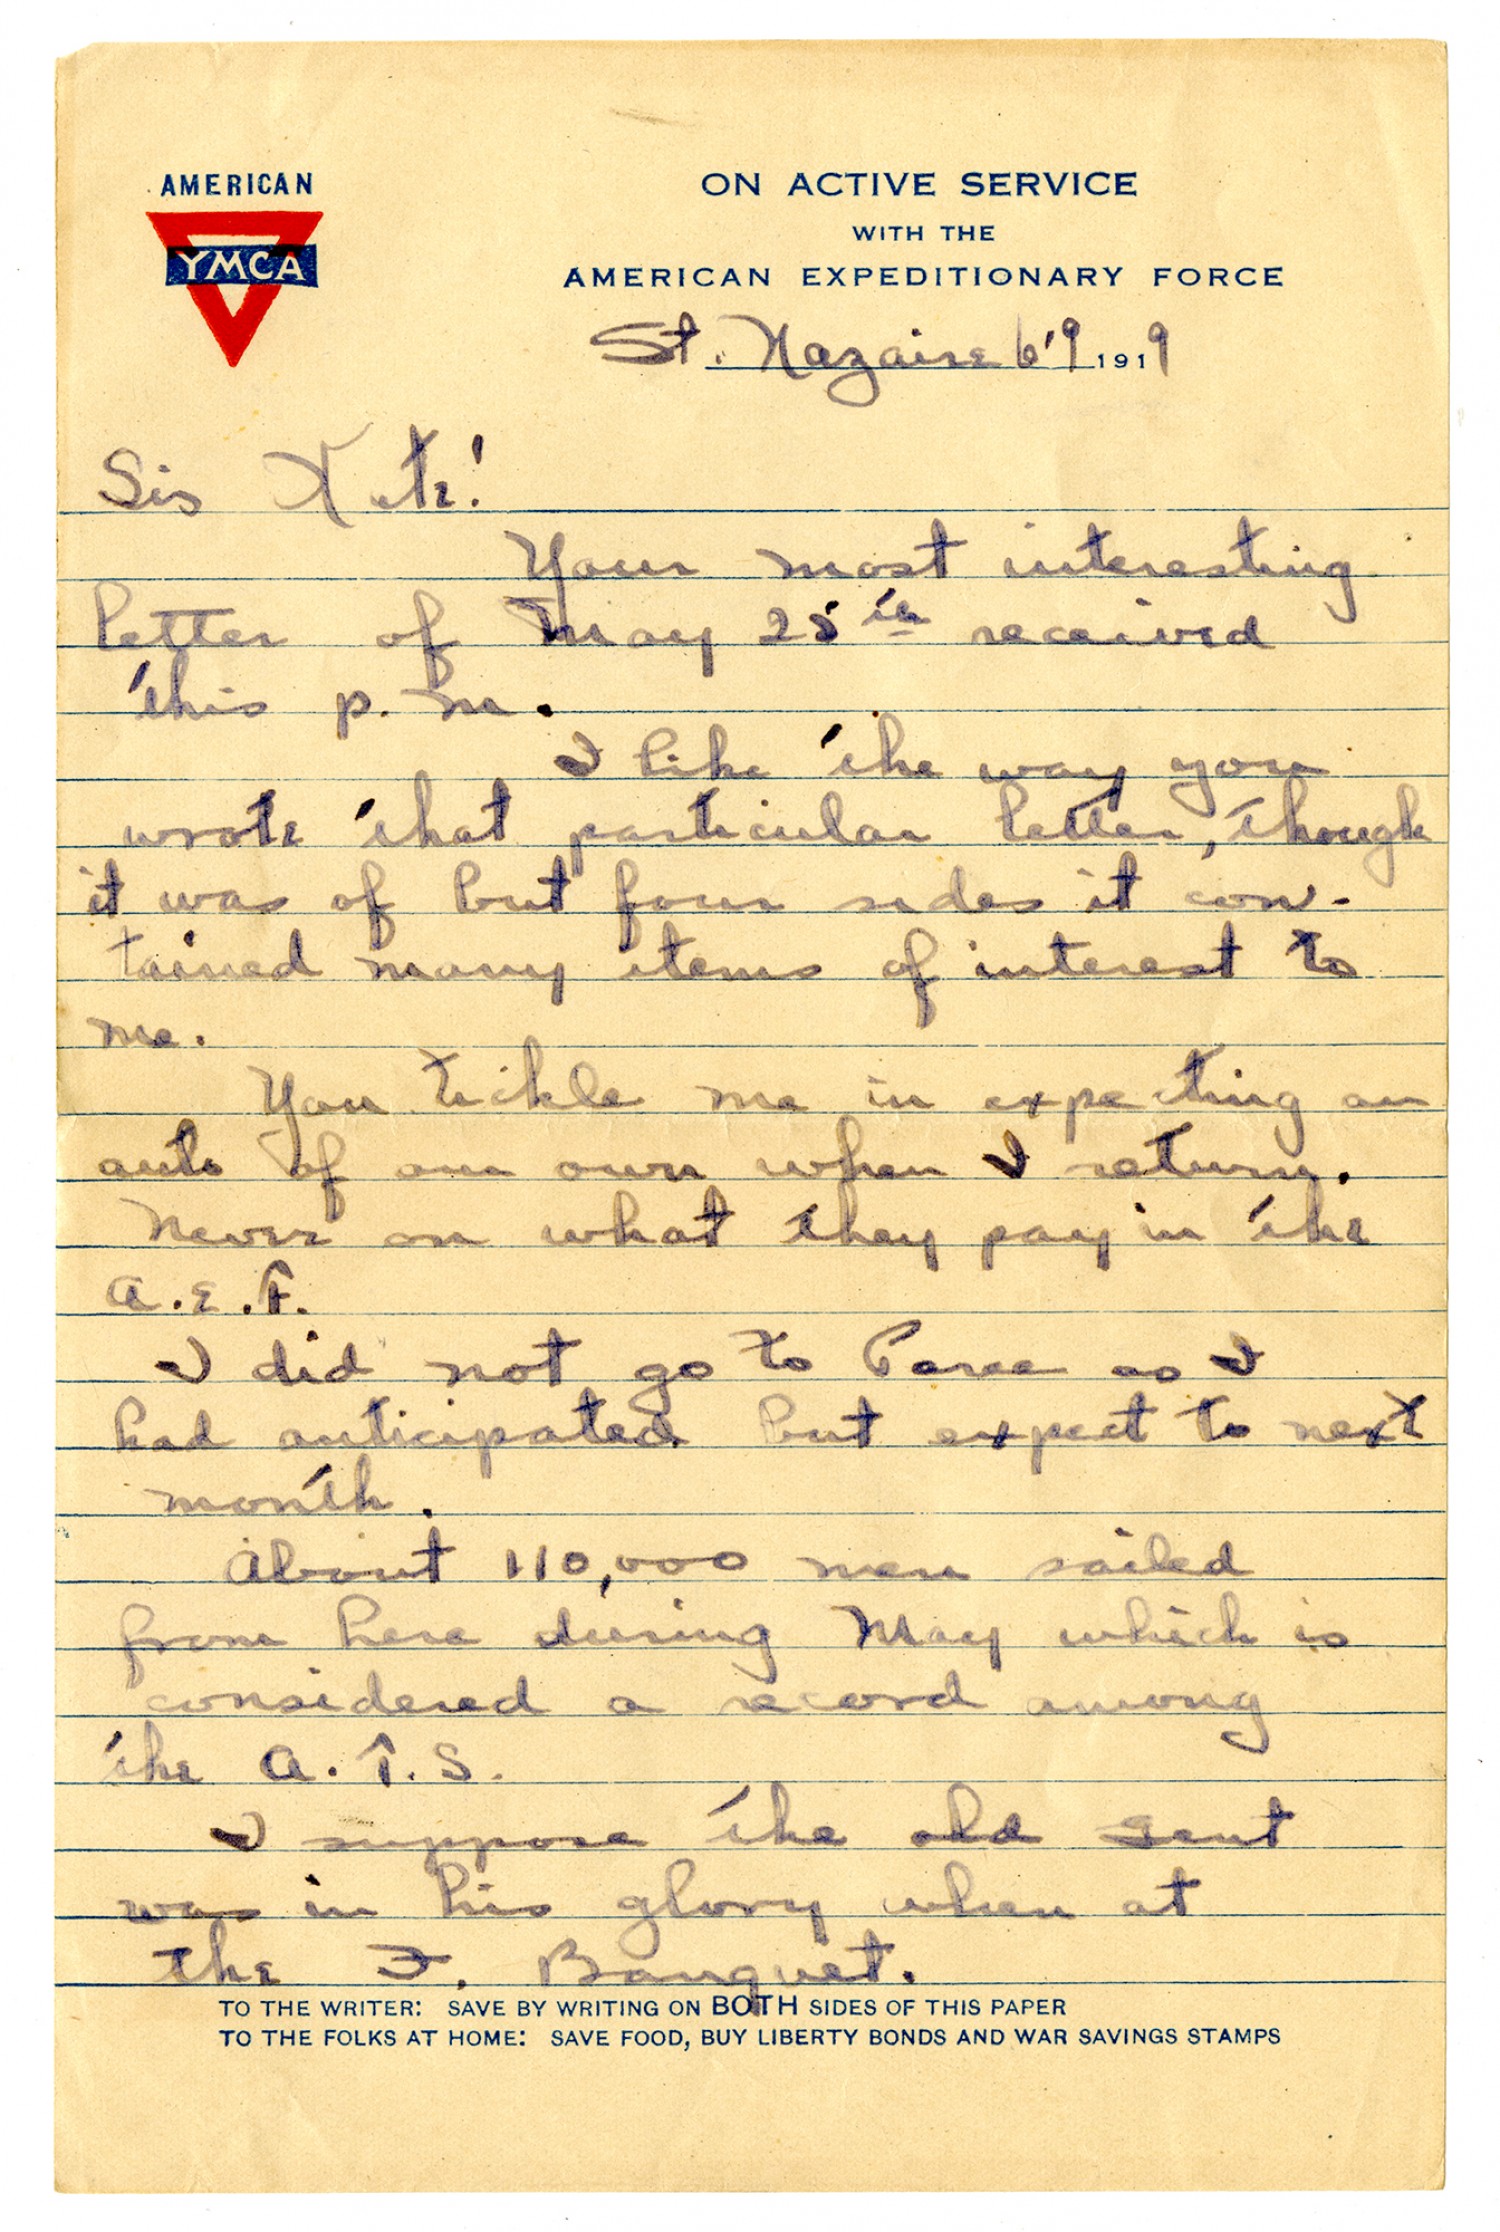 AMERICAN
YMCA
ON ACTIVE SERVICE
WITH THE
AMERICAN EXPEDITIONARY FORCE
St. Nazaire 6'9 1919
Sis
Your most interesting
letter of May 25th received
this p. m.
I like the way you
wrote that particular letter, though
it was of but four sides it con-
tained many items of interest to
me.
You tickle me in expecting an
auto of our own when I return.
Never on what they pay in the
A.E.F.
I did not go to Paree as I
had anticipated but expect to next
month.
About 110,000 men sailed
from here during May which is
considered a record among
the A.T.S.
I suppose the old Gent
was in his glory when at
the Banquet.
TO THE WRITER: SAVE BY WRITING ON BOTH SIDES OF THIS PAPER
TO THE FOLKS AT HOME: SAVE FOOD, BUY LIBERTY BONDS AND WAR SAVINGS STAMPS